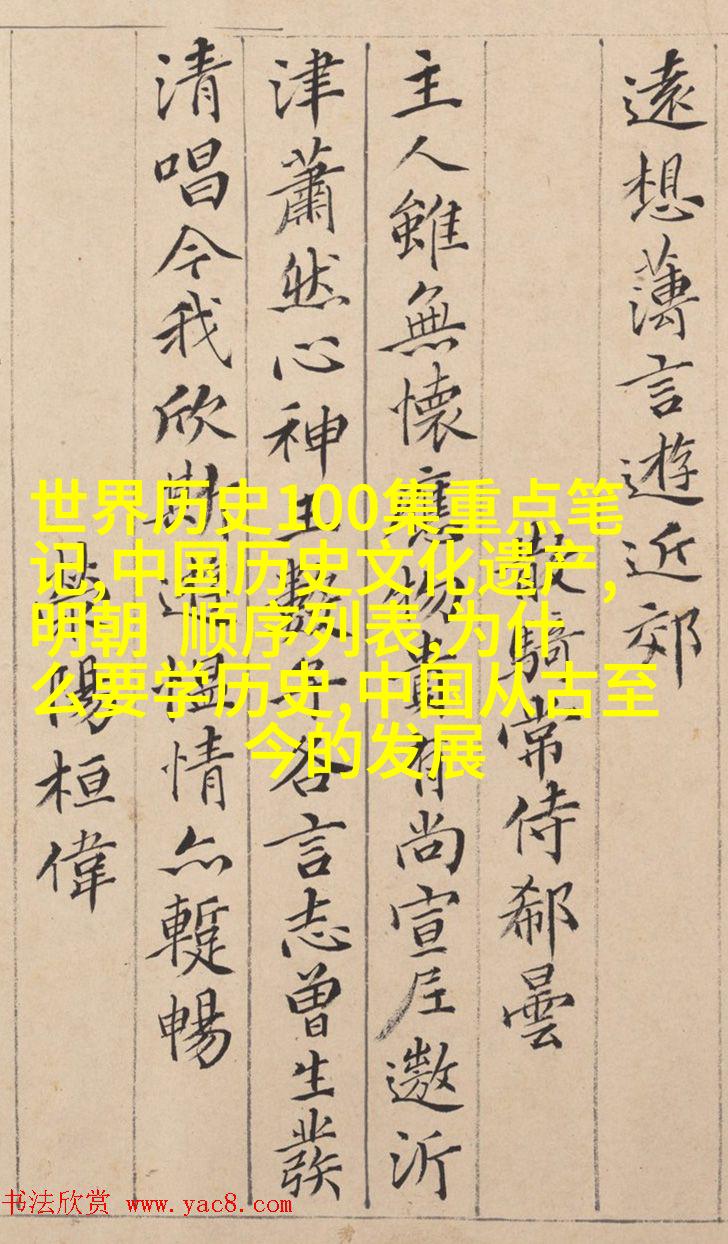 遠想薄言遊近郊
散騎常侍郗曇
主人雖無懷應物貴有尚宣尼遨沂
津蕭然心神王數子各言志曾生發
清唱今我欣斯遊慍情亦蹔暢
滎陽桓偉
世界历史100集重点笔
记,中国历史文化遗产,
明朝 顺序列表,为什
么要学历史,中国从古至
今的发展
书法欣赏 www.yac8.com